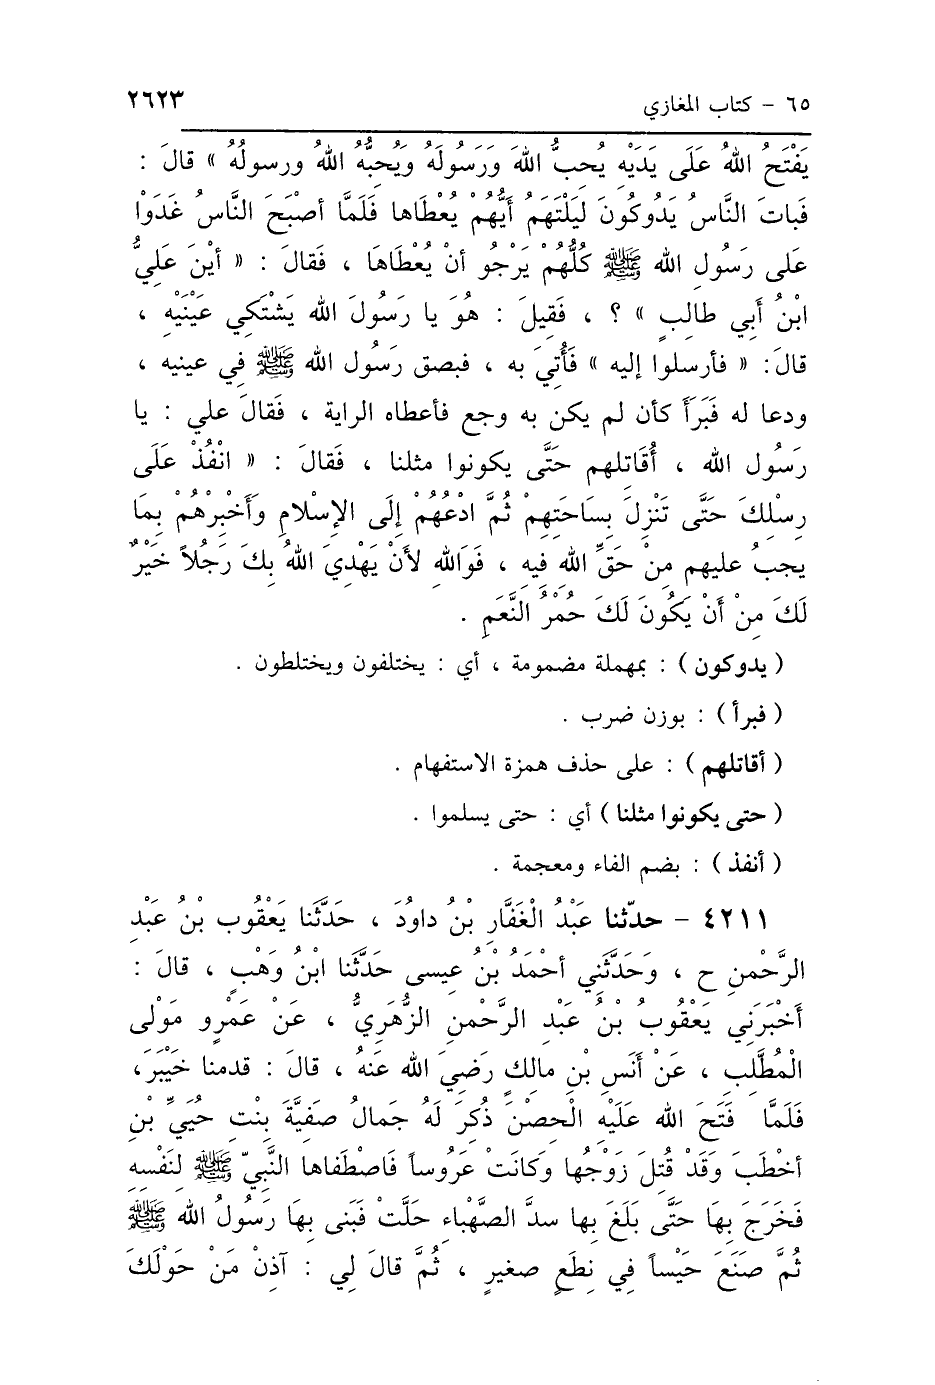 ٦٥ - كتاب المغازي ٢٦٢٣
يَفْتَحُ اللهُ عَلَى يَدَيْهِ يُحِبُّ اللهَ وَرَسُولَهُ وَيُحِبُّهُ اللهُ ورسولُهُ » قالَ :
فَباتَ النَّاسُ يَدُوكُونَ لَيْلَتَهَمُ أَيُّهُمْ يُعْطَاها فَلَمَّا أصْبَحَ النَّاسُ غَدَوْا
عَلى رَسُولِ الله ﷺ كُلُّهُمْ يَرْجُو أنْ يُعْطَاهَا ، فَقالَ : « أيْنَ عَلِيُّ
ابْنُ أَبي طالِبٍ » ؟ ، فَقِيلَ : هُوَ يا رَسُولَ الله يَشْتَكِي عَيْنَيْهِ ،
قالَ: « فأرسلوا إليه » فَأُتِيَ به ، فبصق رَسُول الله ﷺ فِي عينيه ،
ودعا له فَبَرَأَ كأن لم يكن به وجع فأعطاه الراية ، فَقالَ علي : يا
رَسُول الله ، أُقَاتلهم حَتَّى يكونوا مثلنا ، فَقالَ : « انْفُذْ عَلَى
رِسْلِكَ حَتَّى تَنْزِلَ بِسَاحَتِهِمْ ثُمَّ ادْعُهُمْ إِلَى الإِسْلامِ وأَخْبِرْهُمْ بِمَا
يجبُ عليهم مِنْ حَقِّ اللهِ فِيهِ ، فَوَاللهِ لأَنْ يَهْدِيَ اللهُ بِكَ رَجُلاً خَيْرٌ
لَكَ مِنْ أَنْ يَكُونَ لَكَ حُمْرُ النَّعَمِ .
( يدوكون ) : بمهملة مضمومة ، أي : يختلفون ويختلطون .
( فبرأ ) : بوزن ضرب .
( أقاتلهم ) : على حذف همزة الاستفهام .
( حتى يكونوا مثلنا ) أي : حتى يسلموا .
( أنفذ ) : بضم الفاء ومعجمة .
٤٢١١ - حدّثنا عَبْدُ الْغَفَّارِ بْنُ داوُدَ ، حَدَّثَنا يَعْقُوب بْنُ عَبْدِ
الرَّحْمنِ ح ، وَحَدَّثَنِي أحْمَدُ بْنُ عِيسى حَدَّثَنا ابْنُ وَهْبٍ ، قالَ :
أَخْبَرَنِي يَعْقُوبُ بْنُ عَبْدِ الرَّحْمنِ الزُّهَرِيُّ ، عَنْ عَمْرٍو مَوْلى
الْمُطَّلِبِ ، عَنْ أَنَسِ بْنِ مالِكٍ رَضِيَ الله عَنهُ ، قالَ : قدمنا خَيْبَرَ،
فَلَمَّا فَتَحَ الله عَلَيْهِ الْحِصْنَ ذُكِرَ لَهُ جَمالُ صَفِيَّةَ بِنْتِ حُيَيِّ بْنِ
أخْطَبَ وَقَدْ قُتِلَ زَوْجُها وَكانَتْ عَرُوساً فَاصْطَفاها النَّبِيّ ﷺ لِنَفْسِهِ
فَخَرَجَ بِهَا حَتَّى بَلَغَ بِها سدَّ الصَّهْباءِ حَلَّتْ فَبَنى بِهَا رَسُولُ الله ﷺ
ثُمَّ صَنَعَ حَيْساً فِي نِطَعٍ صغيرٍ ، ثُمَّ قالَ لِي : آذِنْ مَنْ حَوْلَكَ